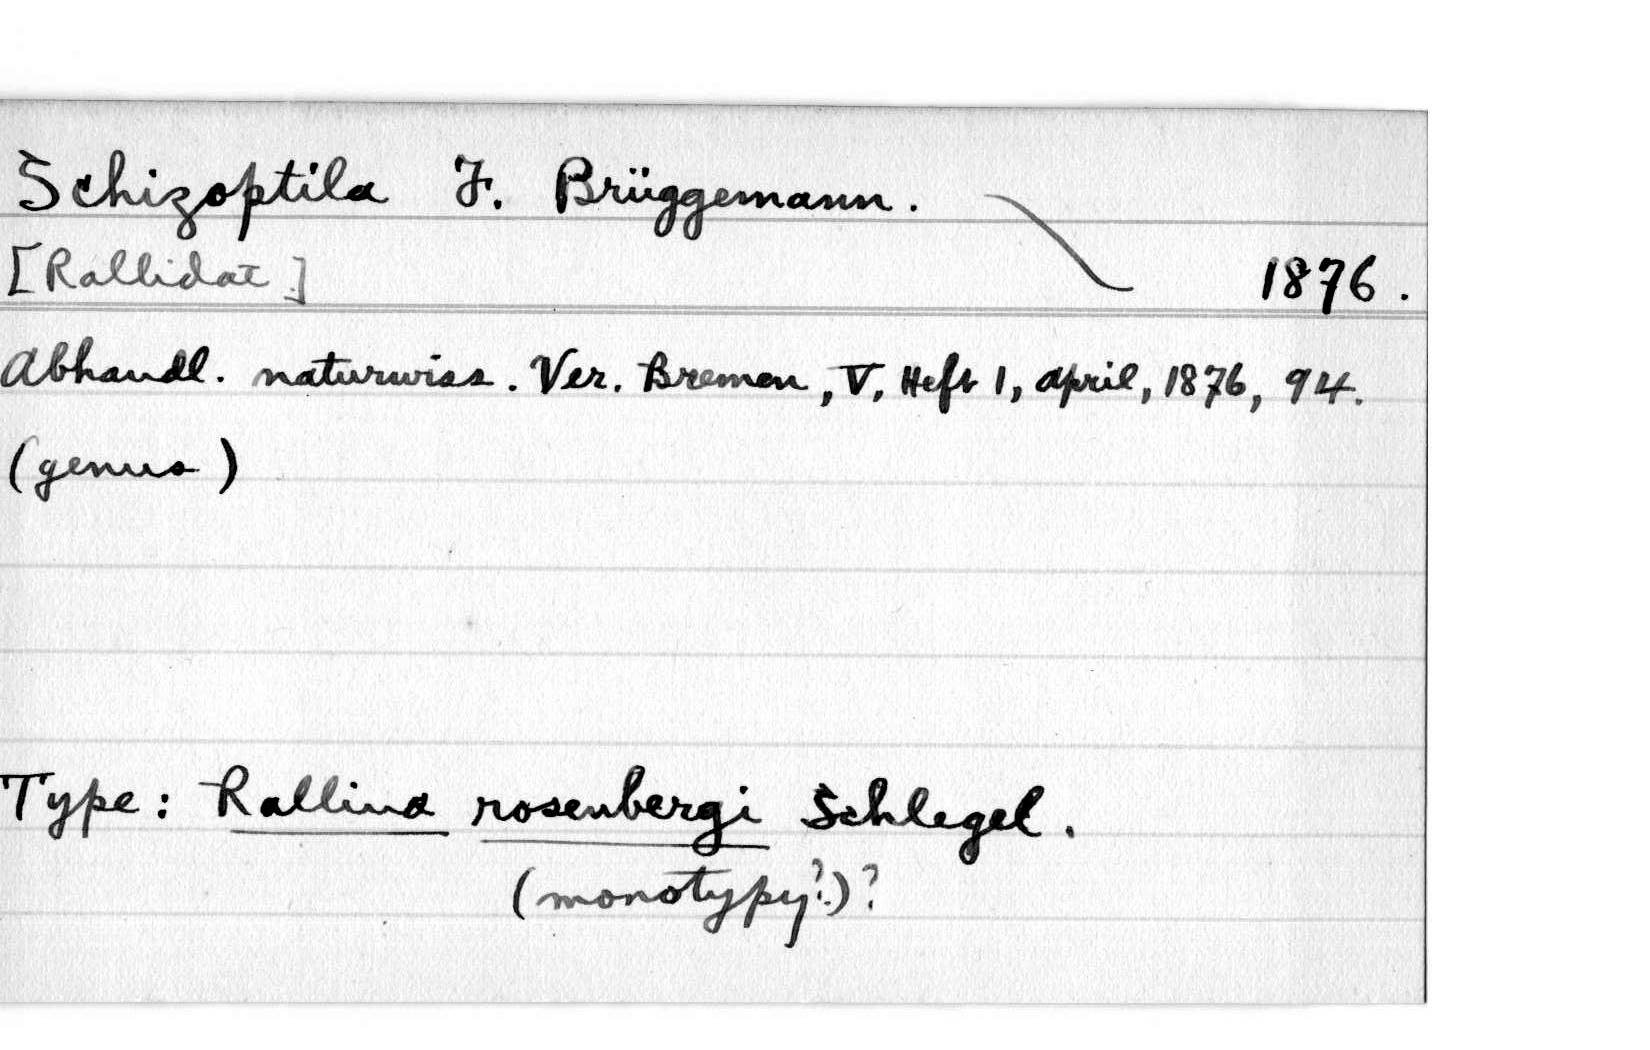 Schizoptila F. Brüggemann.
[Rallidae]
1876.
Abhandl. naturwiss. Ver. Bremen, V, Heft 1, April, 1876, 94.
(genus)
Type: Rallina rosenbergi Schlegel.
(monotypy?)?